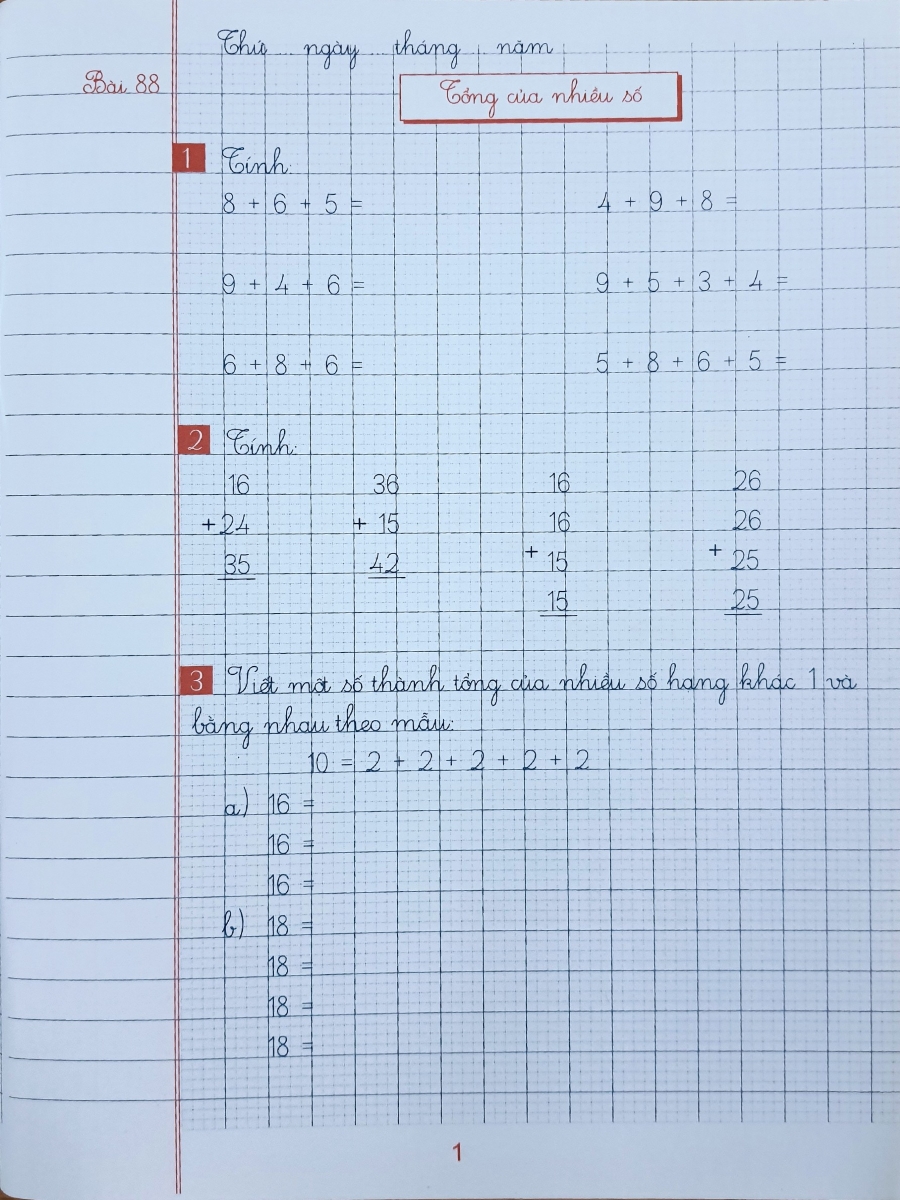 Thứ ngày tháng năm
Bài 88
Tổng của nhiều số
1 Tính:
8 + 6 + 5 = 4 + 9 + 8 =
9 + 4 + 6 = 9 + 5 + 3 + 4 =
6 + 8 + 6 = 5 + 8 + 6 + 5 =
2 Tính:
16 36 16 26
+ 24 + 15 16 26
35 42 + 15 + 25
15 25
3 Viết một số thành tổng của nhiều số hạng khác 1 và
bằng nhau theo mẫu:
10 = 2 + 2 + 2 + 2 + 2
a) 16 =
16 =
16 =
b) 18 =
18 =
18 =
18 =
1